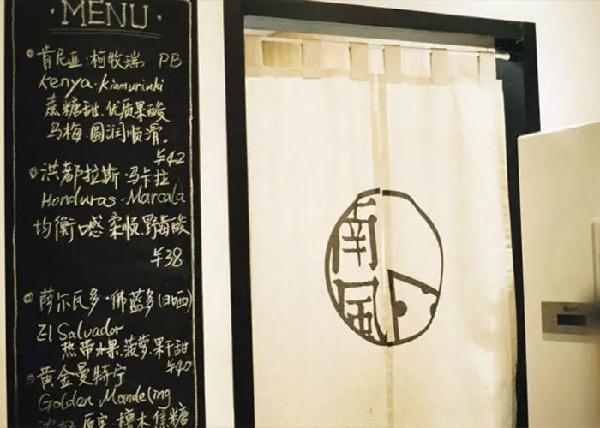 ·MENU·
肯尼亚·柯牧瑞 PB
Kenya·Kiamurinki
蔗糖甜.优质果酸
乌梅.圆润顺滑.
¥42
洪都拉斯·马卡拉
Honduras·Marcala
均衡口感 柔顺.野莓酸
¥38
萨尔瓦多·佛蓝多(日晒)
El Salvador
热带水果.菠萝.果干甜
¥40
黄金曼特宁
Golden Mandeling
檀木 焦糖
南
风